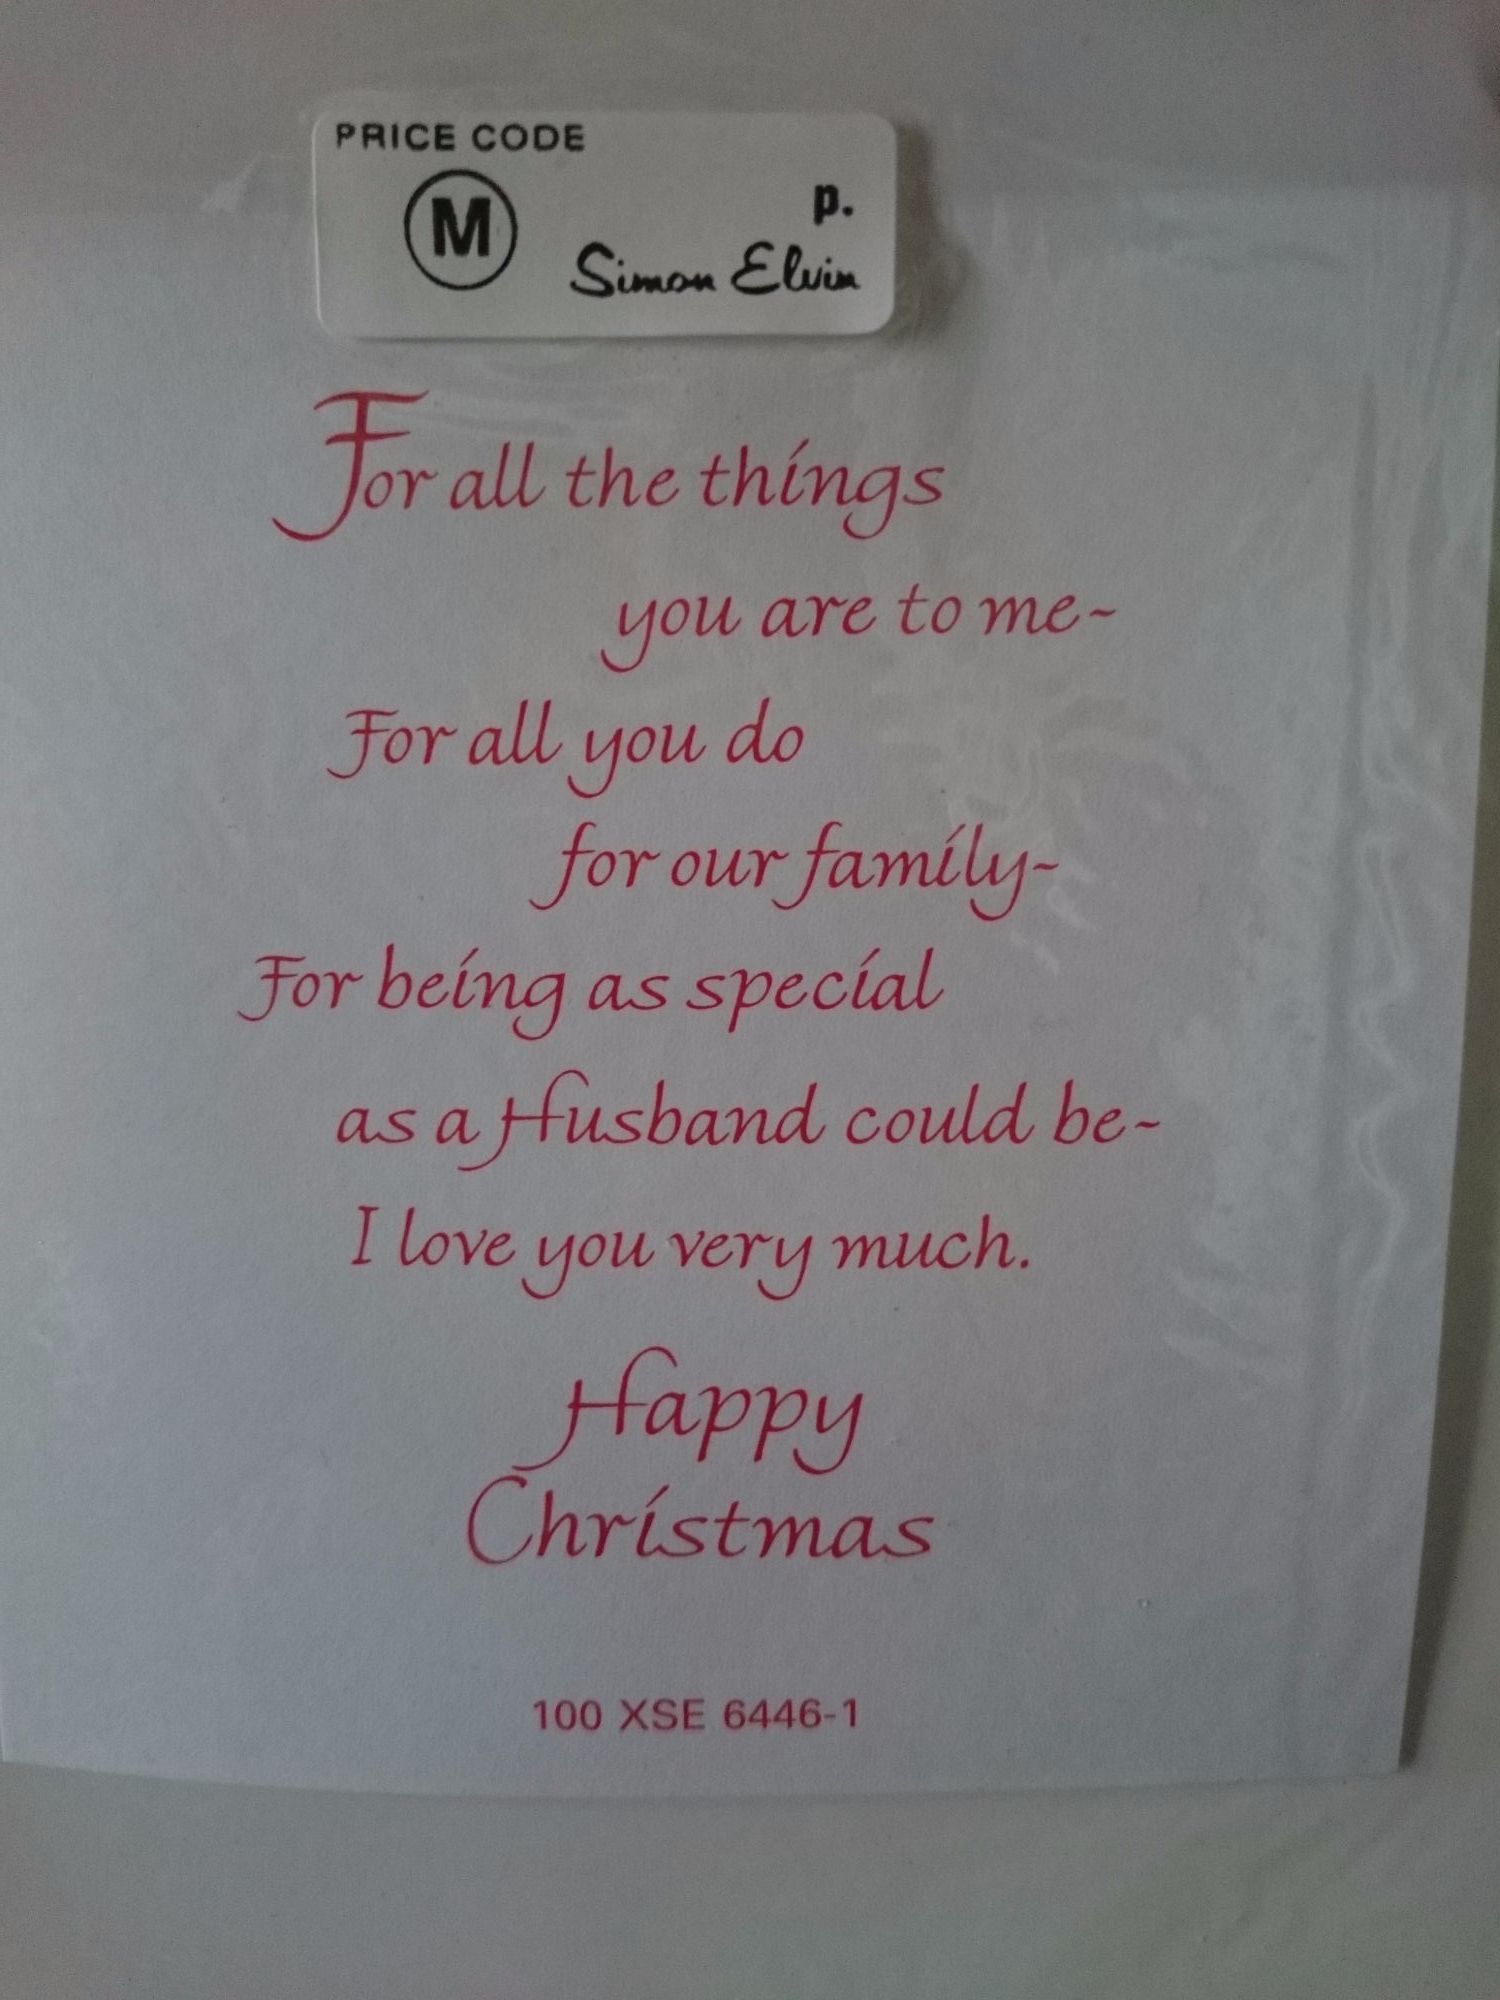 PRICE CODE
M
p.
Simon Elvin
For all the things
you are to me~
For all you do
for our family~
For being as special
as a Husband could be~
I love you very much.
Happy
Christmas
100 XSE 6446-1